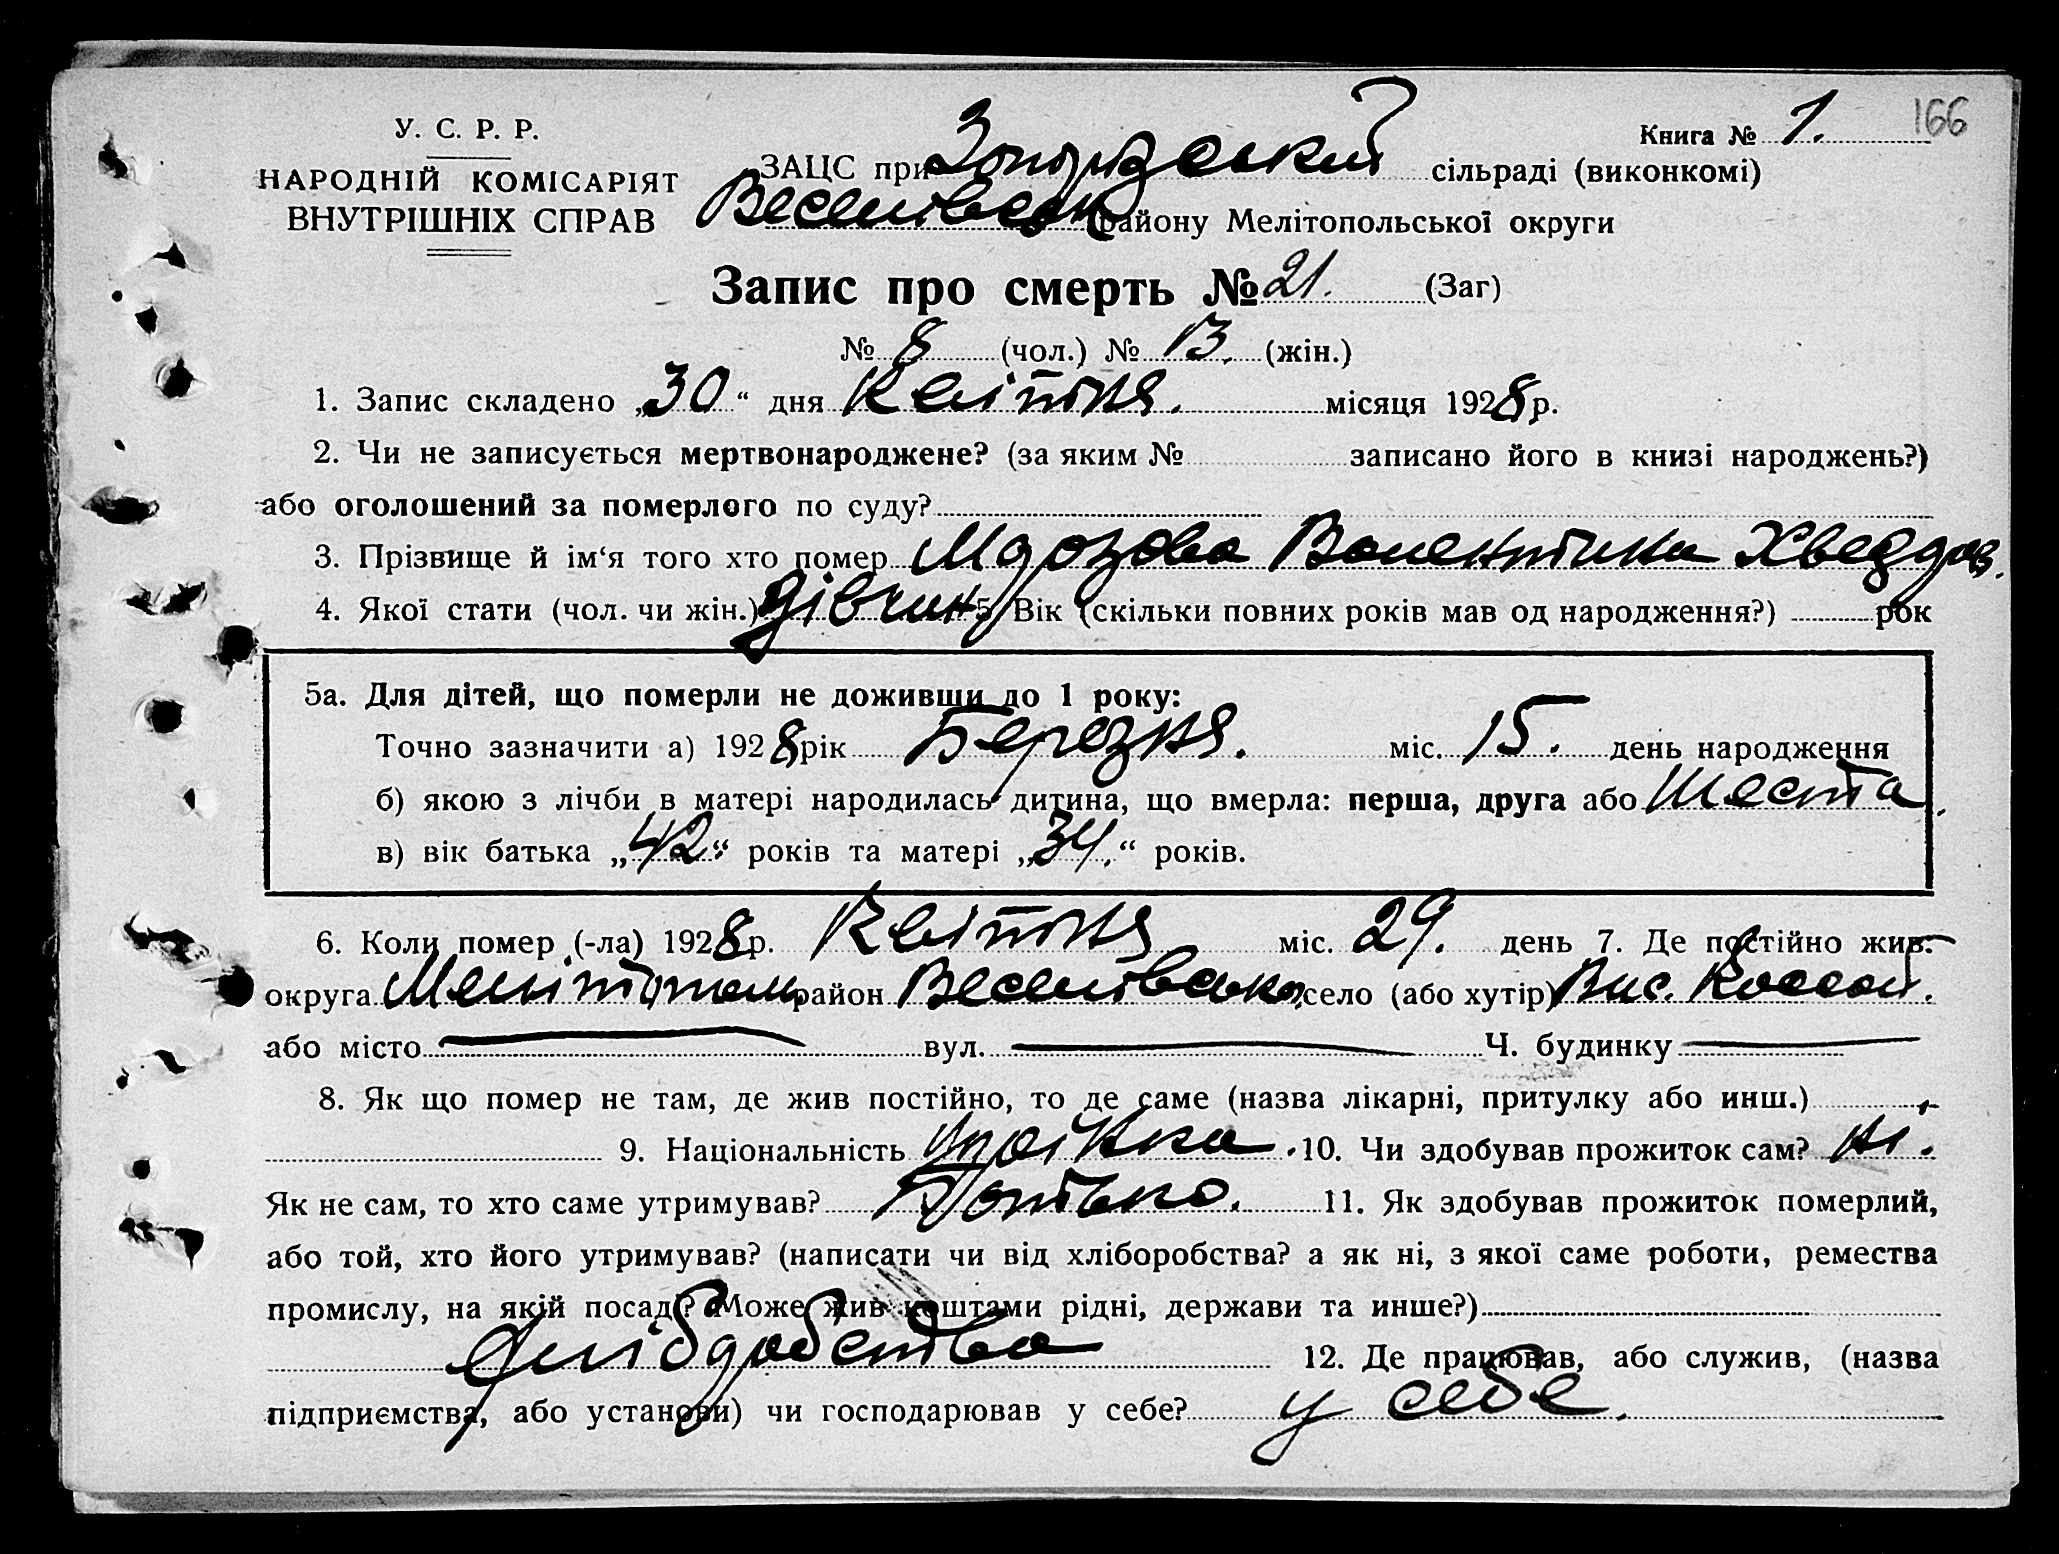 166
У. С. Р. Р.
Книга № 1.
НАРОДНІЙ КОМІСАРІЯТ
ВНУТРІШНІХ СПРАВ
ЗАЦС при сільраді (виконкомі)
Веселівськ району Мелітопольської округи
Запис про смерть № 21. (Заг)
№ 8 (чол.) № 13. (жін.)
1. Запис складено „30“ дня Квітня. місяця 1928 р.
2. Чи не записується мертвонароджене? (за яким № записано його в книзі народжень?)
або оголошений за померлого по суду?
3. Прізвище й ім‘я того хто помер Морозова Валентина Хведоров.
4. Якої стати (чол. чи жін.) дівчин 5. Вік (скільки повних років мав од народження?) рок
5а. Для дітей, що померли не доживши до 1 року:
Точно зазначити а) 1928 рік Березня. міс. 15. день народження
б) якою з лічби в матері народилась дитина, що вмерла: перша, друга або Шеста.
в) вік батька „42“ років та матері „34.“ років.
6. Коли помер (-ла) 1928 р. Квітня міс. 29. день 7. Де постійно жив:
округа Мелітополь район Веселівськ село (або хутір) Вис.
або місто — вул. — Ч. будинку —
8. Як що помер не там, де жив постійно, то де саме (назва лікарні, притулку або инш.)
9. Національність Україн. 10. Чи здобував прожиток сам? ні.
Як не сам, то хто саме утримував? Батько. 11. Як здобував прожиток померлий,
або той, хто його утримував? (написати чи від хліборобства? а як ні, з якої саме роботи, ремества
промислу, на якій посаді? Може жив коштами рідні, держави та инше?)
Хліборобство 12. Де працював, або служив, (назва
підприємства, або установи) чи господарював у себе? у себе.